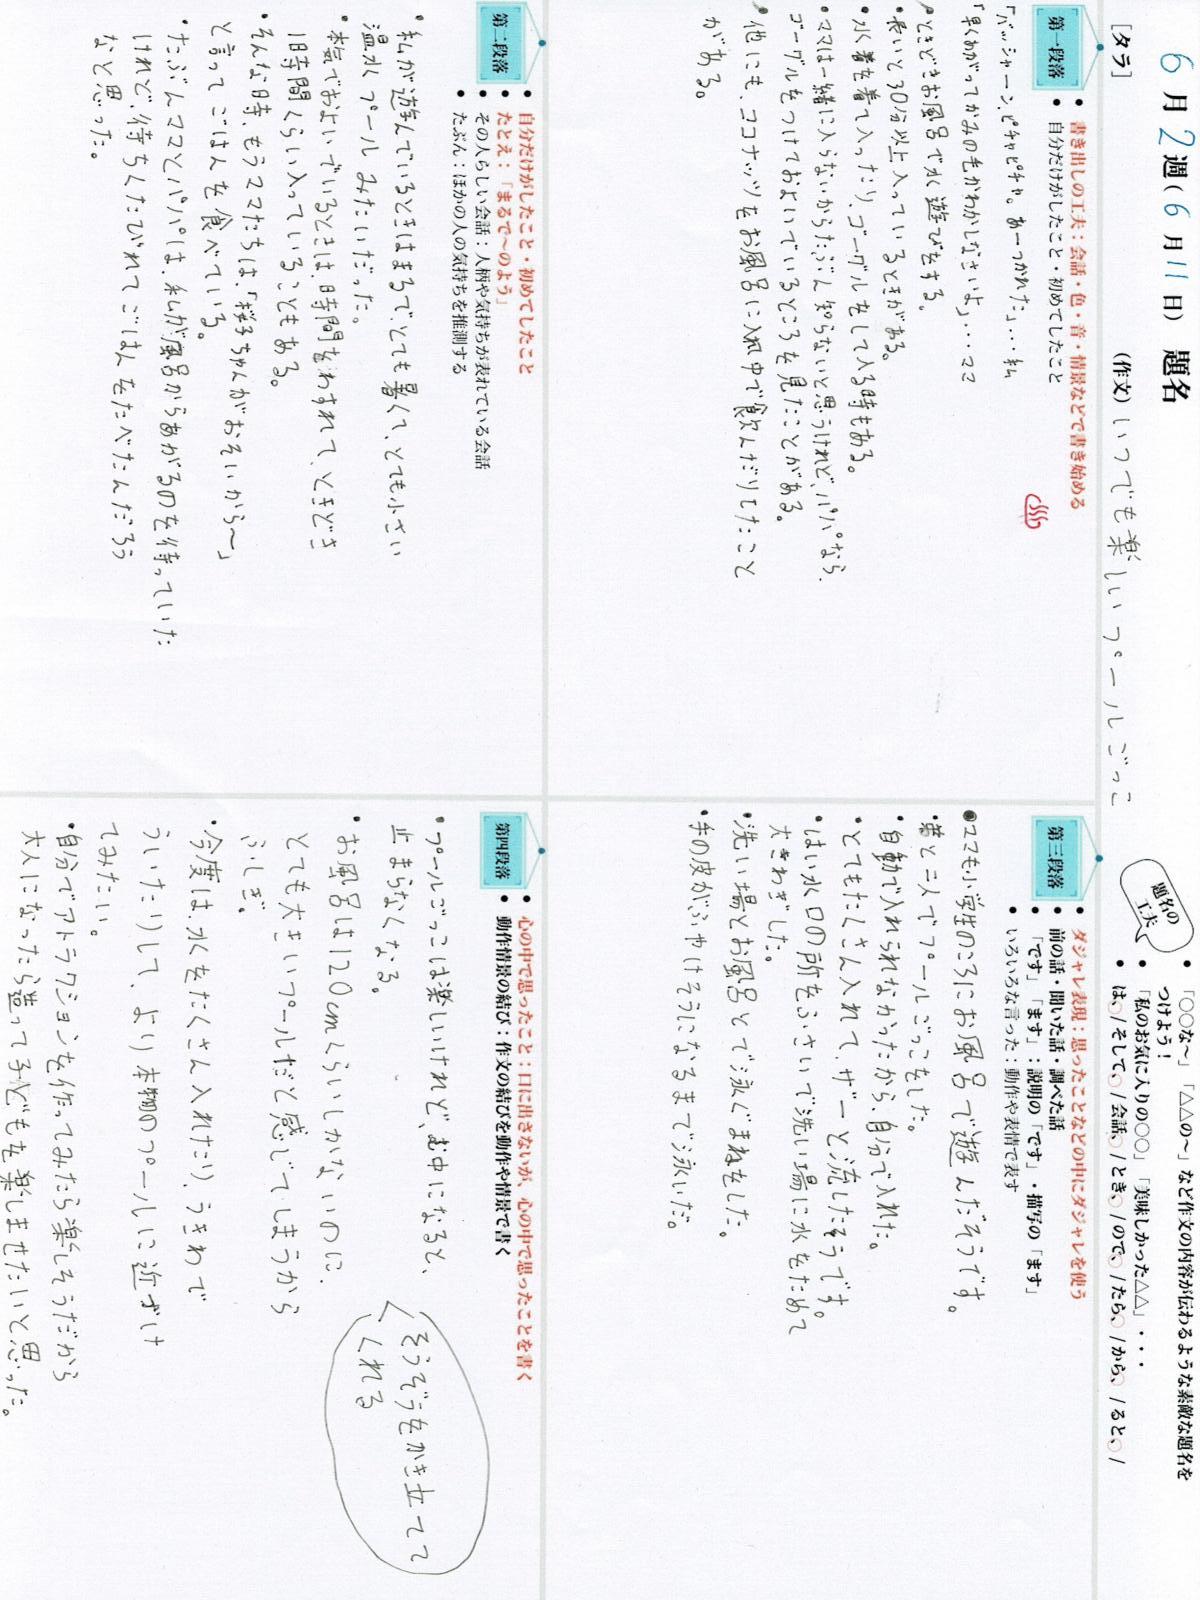 6月2週(6月11日) 題名
[タラ]
(作文)いつでも楽しいプールごっこ
題名の工夫
● 「○○な〜」「△△の〜」など作文の内容が伝わるような素敵な題名を
つけよう！
● 「私のお気に入りの○○」「美味しかった△△」・・・
● は、○/そして、○/会話、○/とき、○/ので、○/たら、○/から、○/ると、○/
第一段落
● 書き出しの工夫：会話・色・音・情景などで書き始める
● 自分だけがしたこと・初めてしたこと
「バッシャーン、ピチャピチャ。あーつかれた」…私
「早くあがってかみの毛かわかしなさいよ」…ママ
・ときどきお風呂で水遊びをする。
・長いと30分以上入っているときがある。
・水着を着て入ったり、ゴーグルをして入る時もある。
・ママは一緒に入らないからたぶん知らないと思うけれど、パパなら、
ゴーグルをつけておよいでいるところを見たことがある。
・他にも、ココナッツをお風呂に入れ中で飲んだりしたこと
がある。
第二段落
● 自分だけがしたこと・初めてしたこと
● たとえ：「まるで〜のよう」
● その人らしい会話：人柄や気持ちが表れている会話
● たぶん：ほかの人の気持ちを推測する
・私が遊んでいるときはまるでとても暑くて、とても小さい
温水プールみたいだった。
・本気でおよいでいるときは、時間をわすれて、ときどき
1時間くらい入っていることもある。
・そんな時、もうママたちは、「桜子ちゃんがおそいから〜」
と言ってごはんを食べている。
・たぶんママとパパは、私が風呂からあがるのを待っていた
けれど、待ちくたびれてごはんをたべたんだろう
なと思った。
第三段落
● ダジャレ表現：思ったことなどの中にダジャレを使う
● 前の話・聞いた話・調べた話
● 「です」「ます」：説明の「です」・描写の「ます」
● いろいろな言った：動作や表情で表す
・ママも小学生のころにお風呂で遊んだそうです。
・と二人でプールごっこをした。
・自動で入れられなかったから、自分で入れた。
・とてもたくさん入れて、ザーと流したそうです。
・はい水口の所をふさいで洗い場に水をためて
大さわぎした。
・洗い場とお風呂とで泳ぐまねをした。
・手の皮がふやけそうになるまで泳いだ。
第四段落
● 心の中で思ったこと：口に出さないが、心の中で思ったことを書く
● 動作情景の結び：作文の結びを動作や情景で書く
・プールごっこは楽しいけれど、む中になると、
止まらなくなる。
・お風呂は120cmくらいしかないのに、
とても大きいプールだと感じてしまうから
ふしぎ。
そうぞうをかき立てて
くれる
・今度は、水をたくさん入れたり、うきわで
ういたりして、より本物のプールに近づけ
てみたい。
・自分でアトラクションを作ってみたら楽しそうだから
大人になったら造って子どもを楽しませたいと思った。